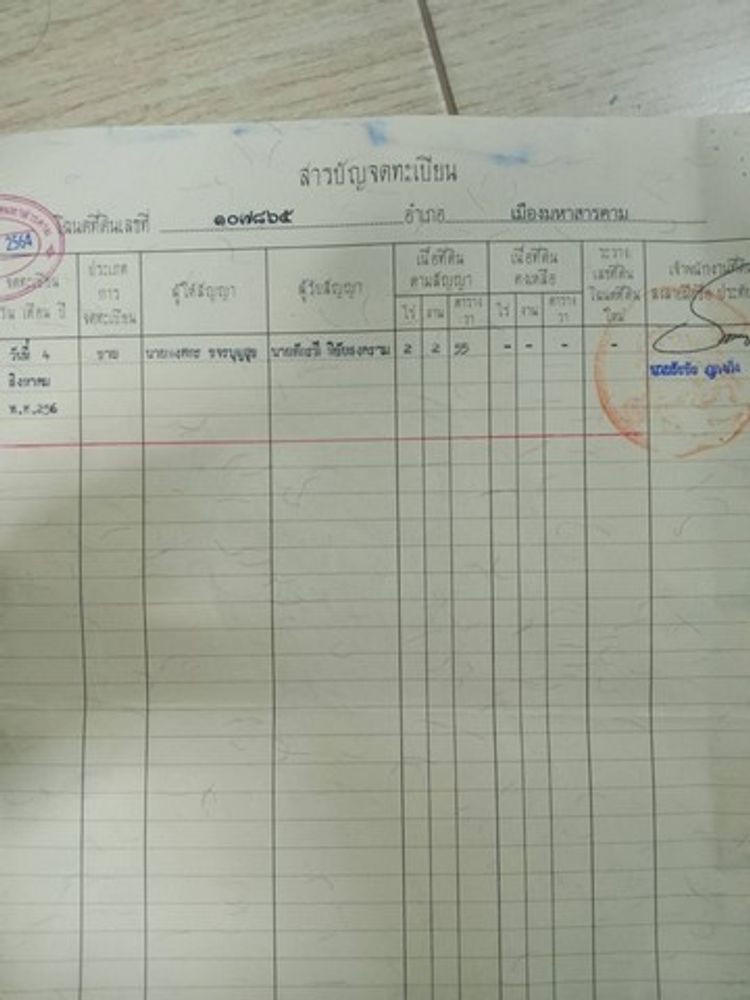 สารบัญจดทะเบียน
โฉนดที่ดินเลขที่ ๑๐๗๘๖๕ อำเภอ เมืองมหาสารคาม
2564
จดทะเบียน
วัน เดือน ปี
ประเภท
การ
จดทะเบียน
ผู้ให้สัญญา
ผู้รับสัญญา
เนื้อที่ดิน
ตามสัญญา
ไร่ งาน ตาราง
วา
เนื้อที่ดิน
คงเหลือ
ไร่ งาน ตาราง
วา
ระวาง
เลขที่ดิน
โฉนดที่ดิน
ใหม่
เจ้าพนักงานที่ดิน
วันที่ 4 ขาย 2 2 55 - - - -
สิงหาคม
พ.ศ.256